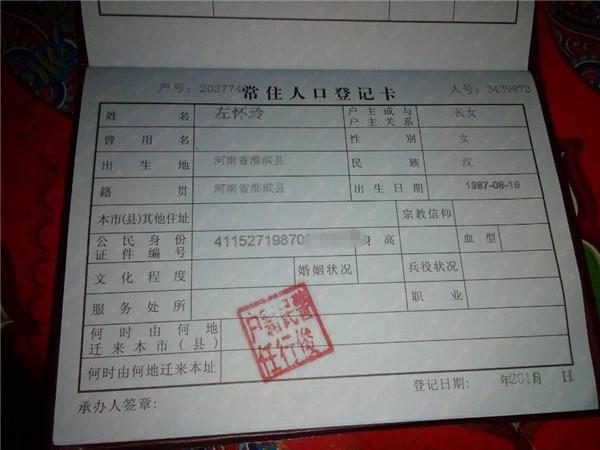 户号: 202774 常住人口登记卡 人号: 3439872
姓名 左怀玲 户主或与户主关系 长女
曾用名 性别 女
出生地 河南省淮滨县 民族 汉
籍贯 河南省淮滨县 出生日期 1987-08-16
本市(县)其他住址 宗教信仰
公民身份证件编号 41152719870 身高 血型
文化程度 婚姻状况 兵役状况
服务处所 职业
何时由何地迁来本市(县)
何时由何地迁来本址
户籍民警
任行俊
登记日期: 年201 月 日
承办人签章: